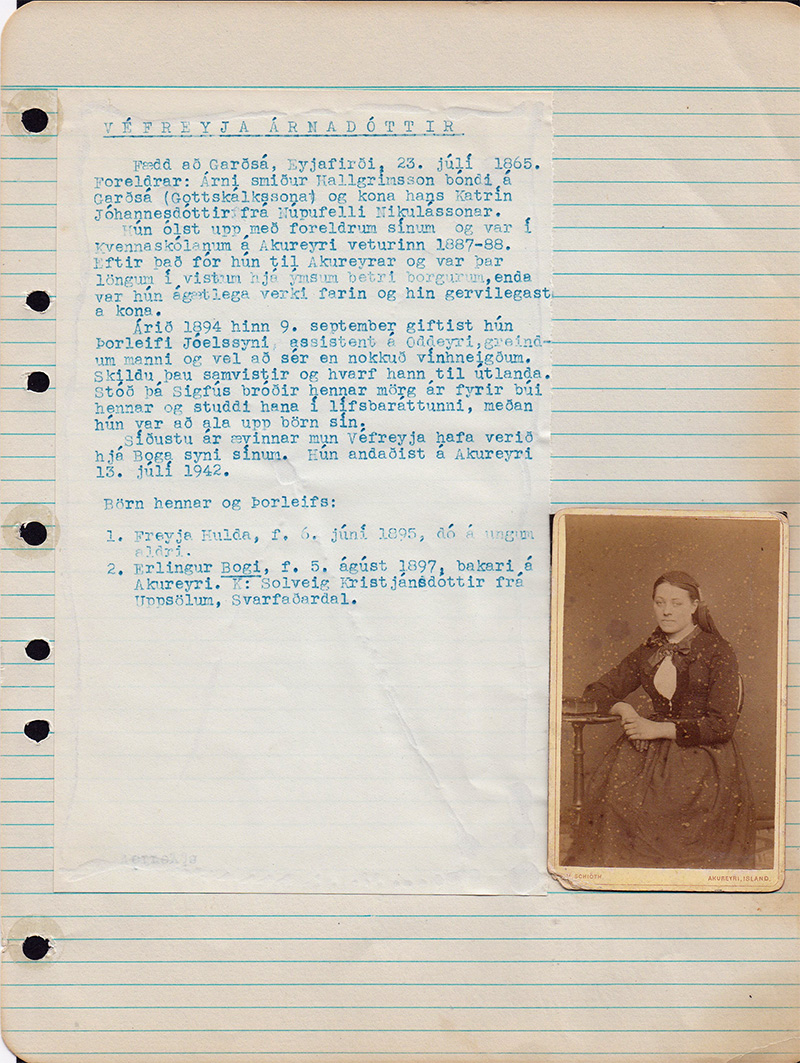 VÉFREYJA ÁRNADÓTTIR
Fædd að Garðsá, Eyjafirði, 23. júlí 1865.
Foreldrar: Árni smiður Hallgrímsson bóndi á
Garðsá (Gottskálkssona) og kona hans Katrín
Jóhannesdóttir frá Núpufelli Nikulássonar.
Hún ólst upp með foreldrum sínum og var í
Kvennaskólanum á Akureyri veturinn 1887-88.
Eftir það fór hún til Akureyrar og var þar
löngum í vistum hjá ýmsum betri borgurum, enda
var hún ágætlega verki farin og hin gervilegast
a kona.
Árið 1894 hinn 9. september giftist hún
Þorleifi Jóelssyni, assistent á Oddeyri, greind-
um manni og vel að sér en nokkuð vínhneigðum.
Skildu þau samvistir og hvarf hann til útlanda.
Stóð þá Sigfús bróðir hennar mörg ár fyrir búi
hennar og studdi hana í lífsbaráttunni, meðan
hún var að ala upp börn sín.
Síðustu ár ævinnar mun Véfreyja hafa verið
hjá Boga syni sínum. Hún andaðist á Akureyri
13. júlí 1942.
Börn hennar og Þorleifs:
1. Freyja Hulda, f. 6. júní 1895, dó á ungum
aldri.
2. Erlingur Bogi, f. 5. ágúst 1897, bakari á
Akureyri. K: Solveig Kristjánsdóttir frá
Uppsölum, Svarfaðardal.
SCHIÖTH AKUREYRI, ISLAND.